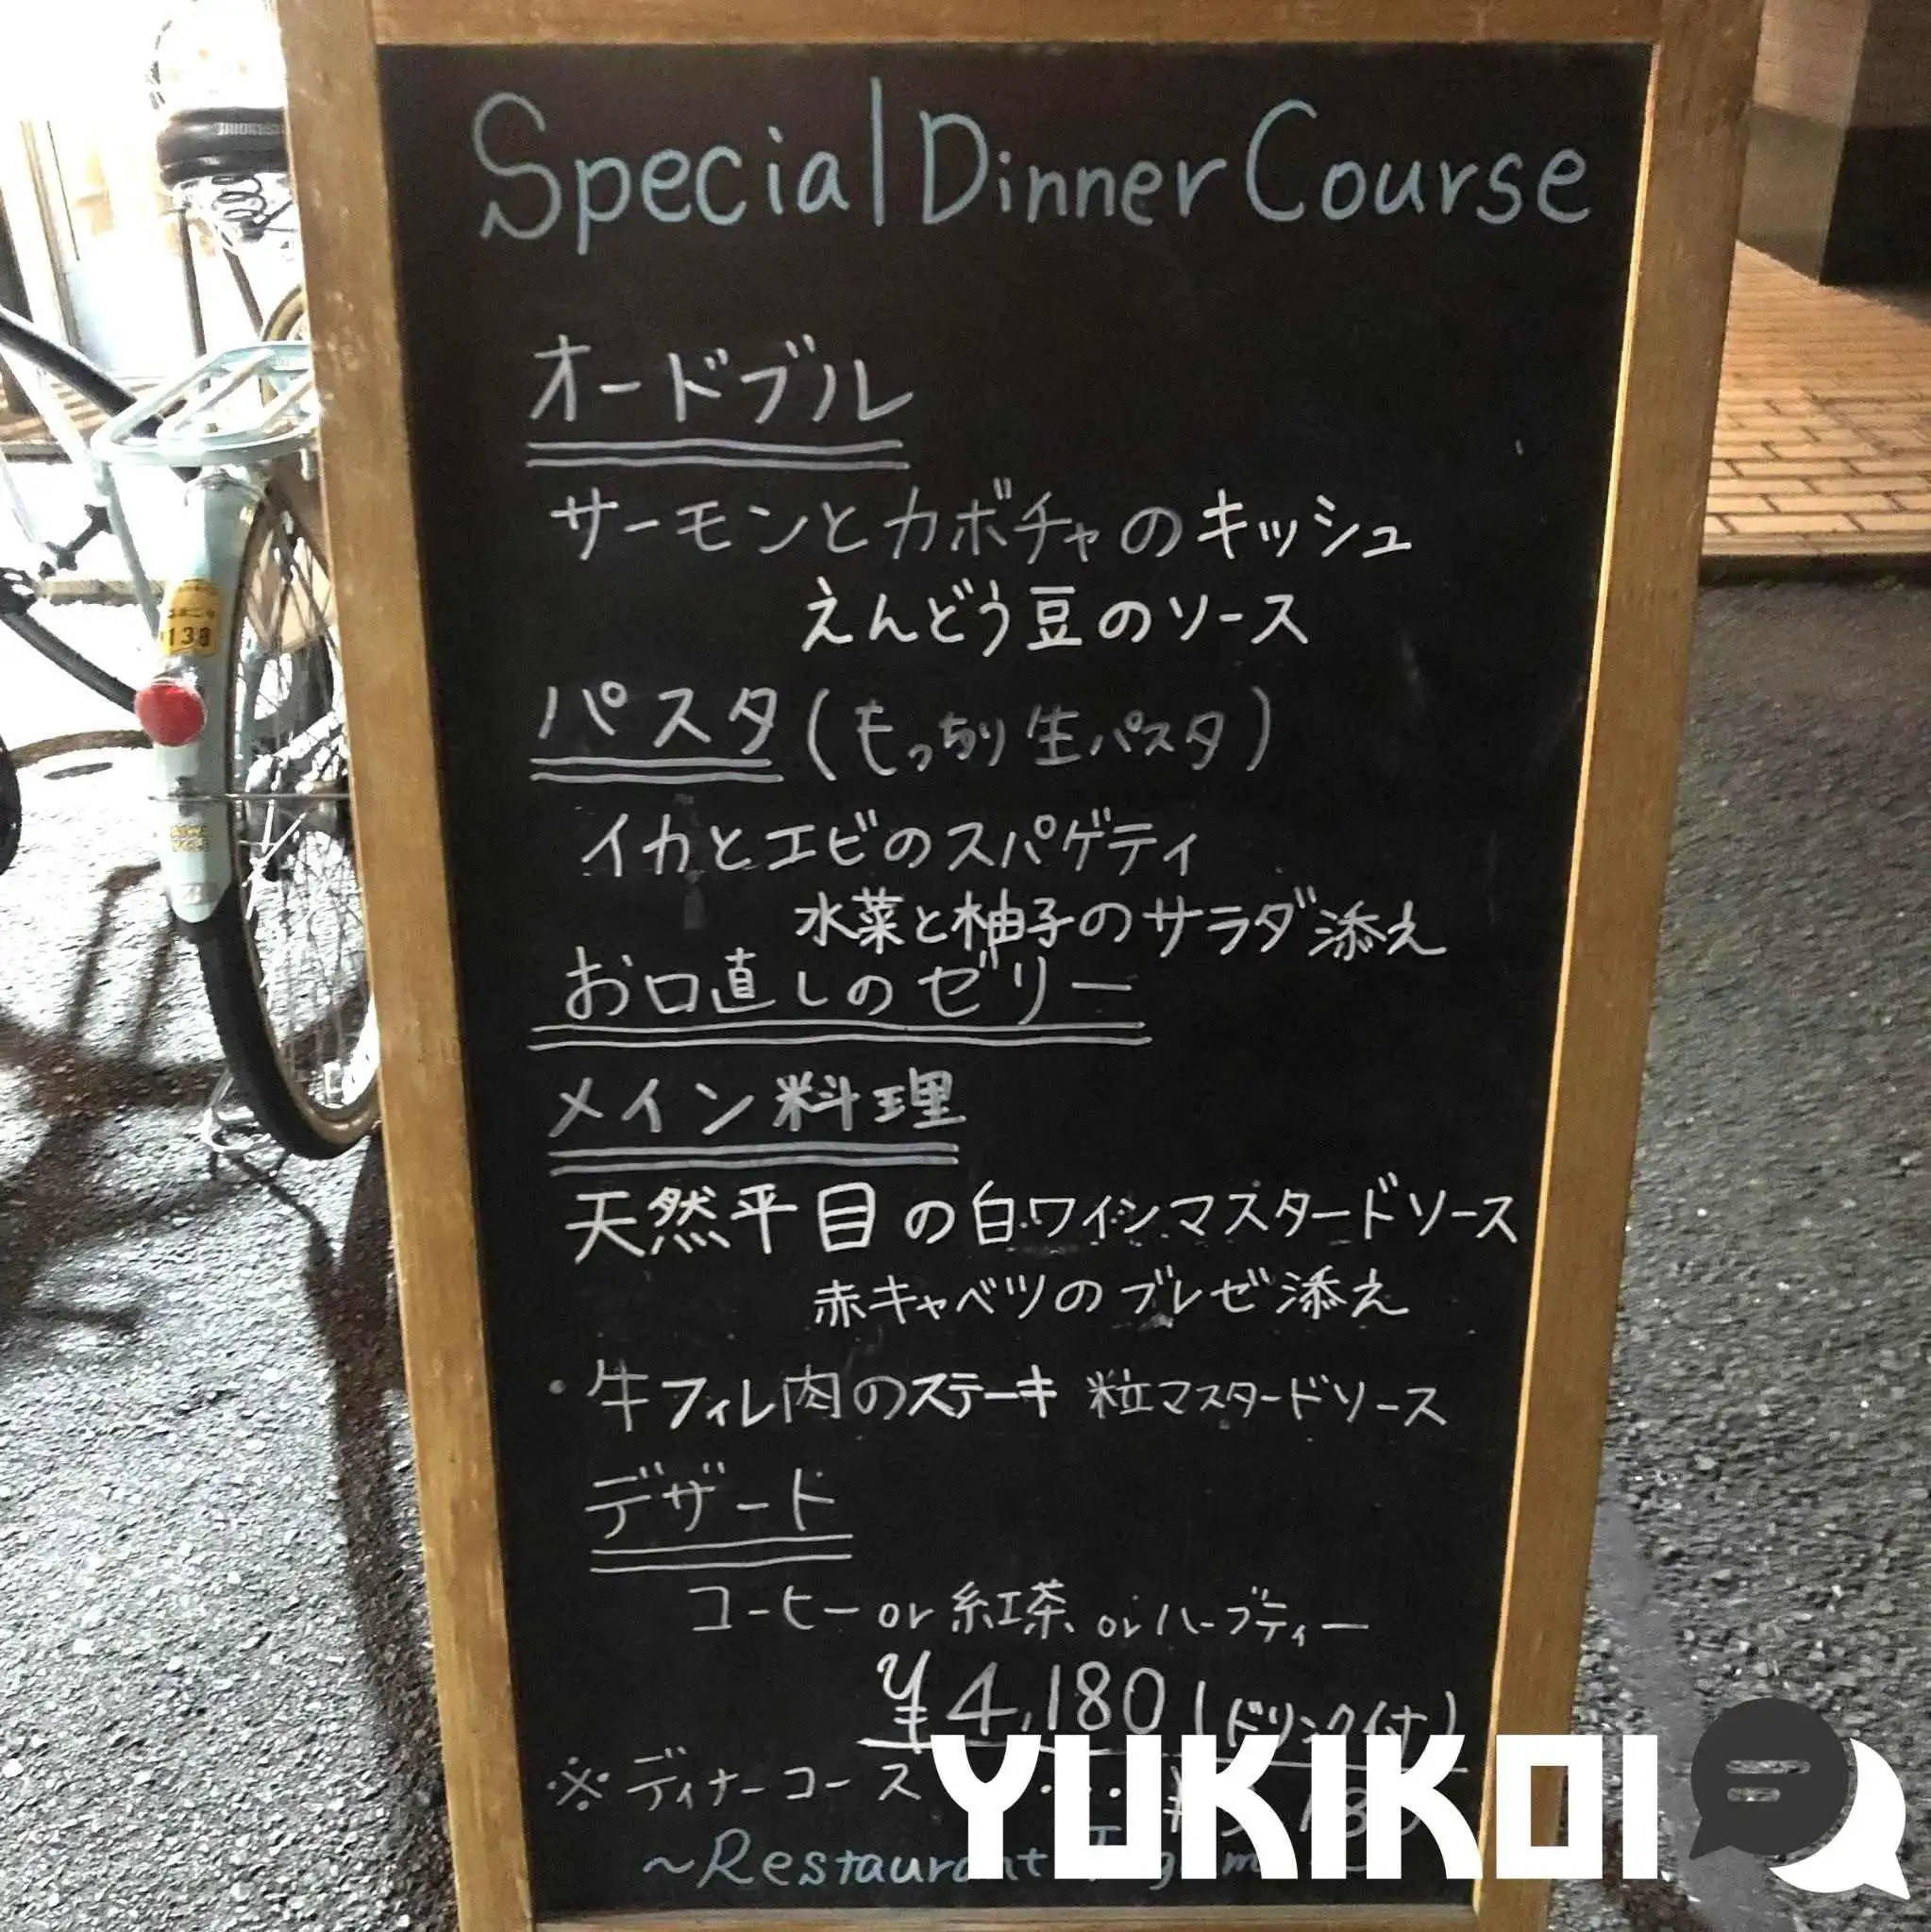 Special Dinner Course
オードブル
サーモンとカボチャのキッシュ
えんどう豆のソース
パスタ(もっちり生パスタ)
イカとエビのスパゲティ
水菜と柚子のサラダ添え
お口直しのゼリー
メイン料理
天然平目の白ワインマスタードソース
赤キャベツのブレゼ添え
・牛フィレ肉のステーキ 粒マスタードソース
デザート
コーヒー or 紅茶 or ハーブティー
¥4,180(ドリンク付)
※ディナーコース
~Restaurant
YUKIKOI
138